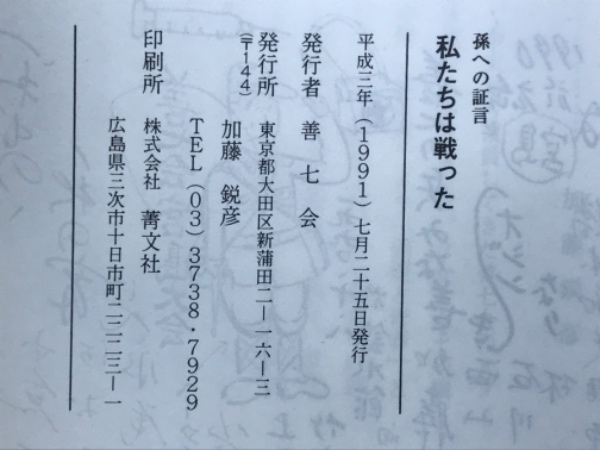 孫への証言
私たちは戦った
平成三年(1991)七月二十五日発行
発行者 善七会
発行所 東京都大田区新蒲田二ー一六ー三
(〒144)
加藤 鋭彦
TEL(03)3738・7929
印刷所 株式会社 菁文社
広島県三次市十日市町二二二三ー一
1990
宮島